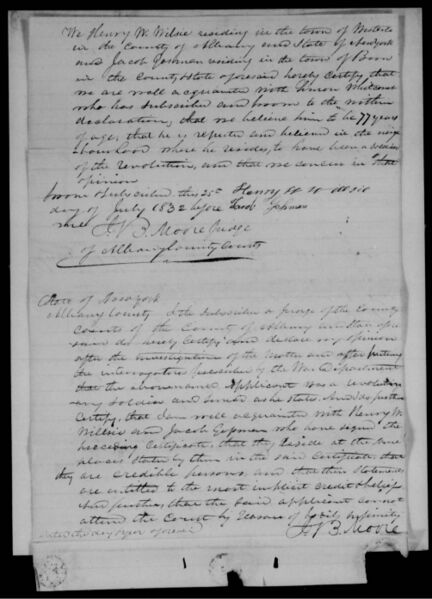 We Henry W. Wilsie residing in the town of Westerlo
in the County of Albany and State of New york
and Jacob residing in the town of
in the County & State aforesaid hereby Certify, that
we are well acquainted with
who has subscribed and sworn to the within
declaration, that we believe him to be 77 years
of age, that he is reputed and believed in the neigh
bourhood where he resides, to have been a
of the revolution, and that we concur in that
opinion
Sworn & subscribed this 25th Henry W
day of July 1832 before Jacob
me
J. V B. Moore Judge
of Albany County Courts
State of New york
Albany County I the subscriber a judge of the County
Courts of the County of Albany and State afore
said do hereby Certify and declare my opinion
after the investigation of the matter and after putting
the interrogatories prescribed by the War Department
that the abovenamed applicant was a revolution
ary soldier and served as he states. And do further
Certify, that I am well acquainted with Henry W
Wilsie and Jacob who have signed the
preceding Certificate, that they reside at the
places stated by them in the said Certificate, that
they are credible persons and that their statements
are entitled to the most implicit credit & belief
And further, that the said applicant cannot
attend the Court by reason of bodily infirmity
dated the day & year aforesaid J. V B. Moore